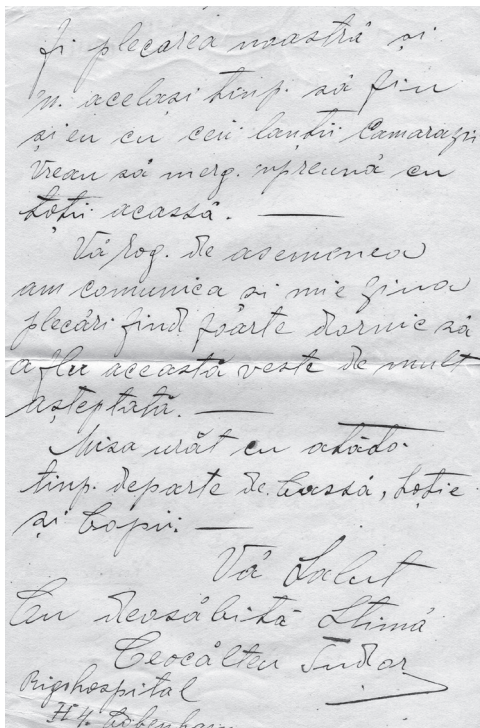 fi plecarea noastră și
n. acelasi timp. să fiu
și eu cu ceii lanții Camarazii
Vreau să merg. npreună cu
toții acassă. —
Vă rog. de asemenea
am comunica si mie ziua
plecări fiind foarte dornic să
aflu această veste de mult
așteptată. —
Misa urăt cu atădo.
timp. departe de. Cassă, Soție
și Copii. —
Vă Salut
Cu deosăbită Stimă
Ceocălteu Tudor
Rigshospital
København